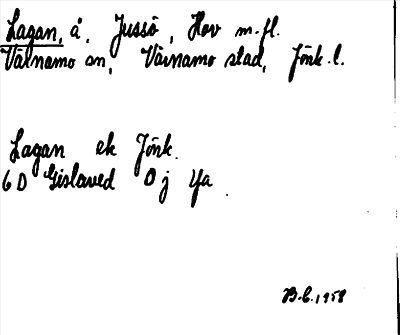 Lagan, å, Jussö, Hov m.fl.
Värnamo sn, Värnamo stad, Jönk. l.
Lagan ek Jönk.
6D Gislaved 0j Ya
B.C. 1958